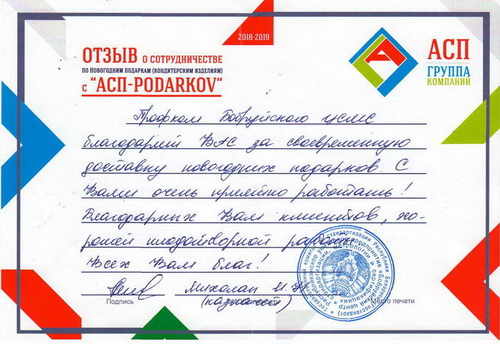 2018-2019
ОТЗЫВ О СОТРУДНИЧЕСТВЕ
ПО НОВОГОДНИМ ПОДАРКАМ (КОНДИТЕРСКИМ ИЗДЕЛИЯМ)
С "АСП-PODARKOV"
АСП
ГРУППА
КОМПАНИЙ
Профком Бобруйского ЦСМС
благодарит ВАС за своевременную
доставку новогодних подарков. С
Вами очень приятно работать!
Благодарных Вам клиентов, хо-
рошей плодотворной работы.
Всех Вам благ!
(казначей)
Подпись
Место печати